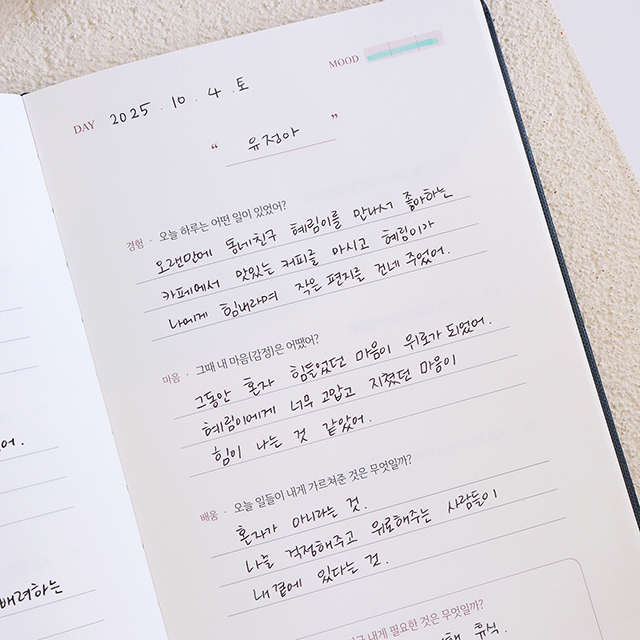 MOOD
DAY 2025. 10. 4. 토
“ 유정아 ”
경험 · 오늘 하루는 어떤 일이 있었어?
오랜만에 동네친구 혜림이를 만나서 좋아하는
카페에서 맛있는 커피를 마시고 혜림이가
나에게 힘내라며 작은 편지를 건네 주었어.
마음 · 그때 내 마음(감정)은 어땠어?
그동안 혼자 힘들었던 마음이 위로가 되었어.
혜림이에게 너무 고맙고 지쳤던 마음이
힘이 나는 것 같았어.
배움 · 오늘 일들이 내게 가르쳐준 것은 무엇일까?
혼자가 아니라는 것.
나를 걱정해주고 위로해주는 사람들이
내 곁에 있다는 것.
내게 필요한 것은 무엇일까?
휴식.
어.
배려하는